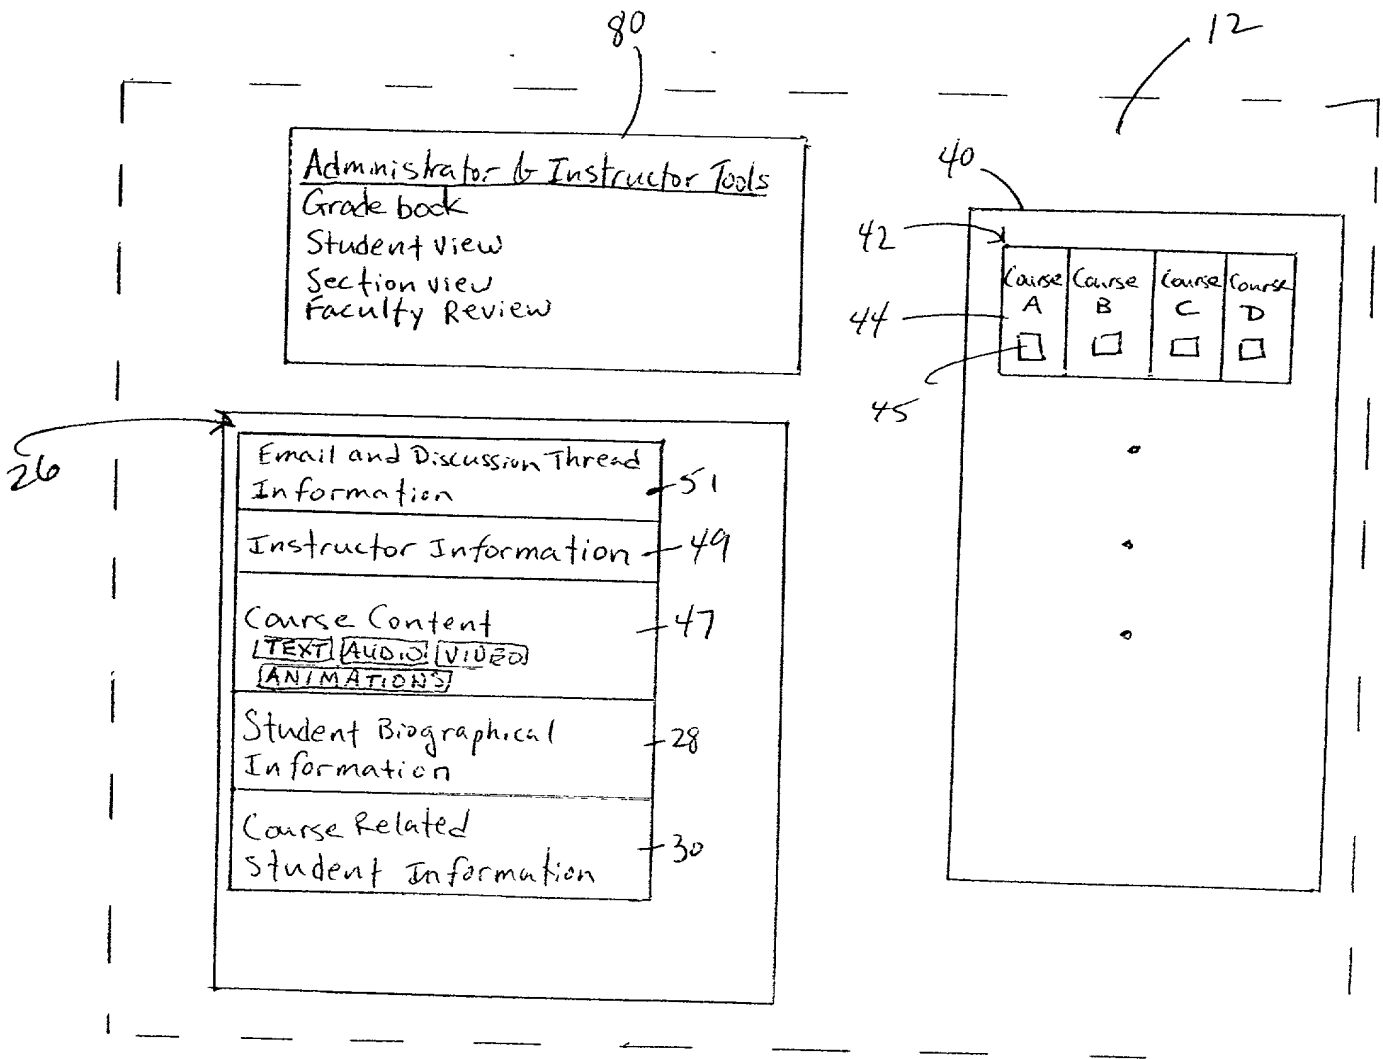 80
12
Administrator & Instructor Tools
Grade book
Student view
Section view
Faculty Review
40
42
Course A
Course B
Course C
Course D
44
45
26
Email and Discussion Thread
Information
51
Instructor Information
49
Course Content
TEXT AUDIO VIDEO
ANIMATIONS
47
Student Biographical
Information
28
Course Related
Student Information
30